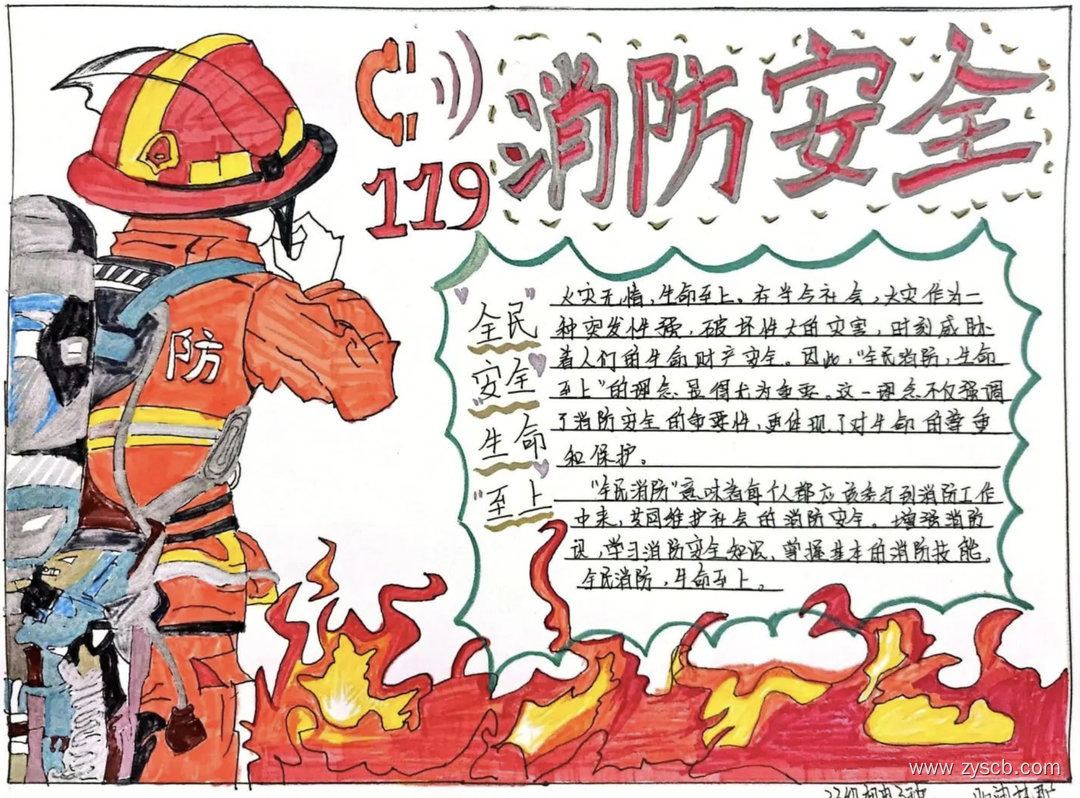 消防安全
119
防
"全民"
安全
"生命
"至上
火灾无情，生命至上。在当今社会，火灾作为一
种突发性强，破坏性大的灾害，时刻威胁
着人们的生命财产安全。因此，"全民消防，生命
至上"的理念显得尤为重要。这一理念不仅强调
了消防安全的重要性，更体现了对生命的尊重
和保护。
"全民消防"意味着每个人都应该参与到消防工作
中来，共同维护社会的消防安全。增强消防
识，学习消防安全知识，掌握基本的消防技能。
全民消防，生命至上。
www.zyscb.com